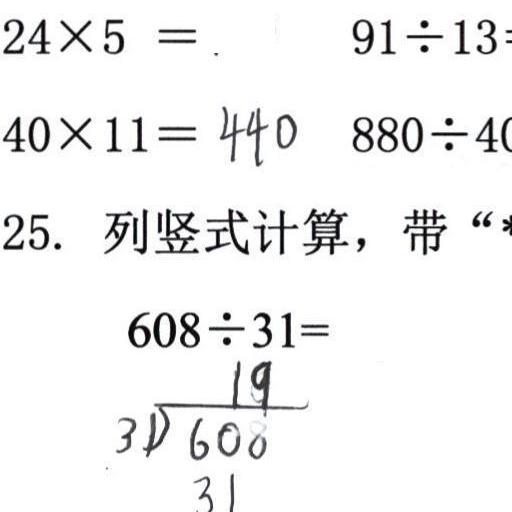 24×5 =        91÷13=
40×11= 440   880÷40
25. 列竖式计算，带“*
608÷31=
19
31)608
31